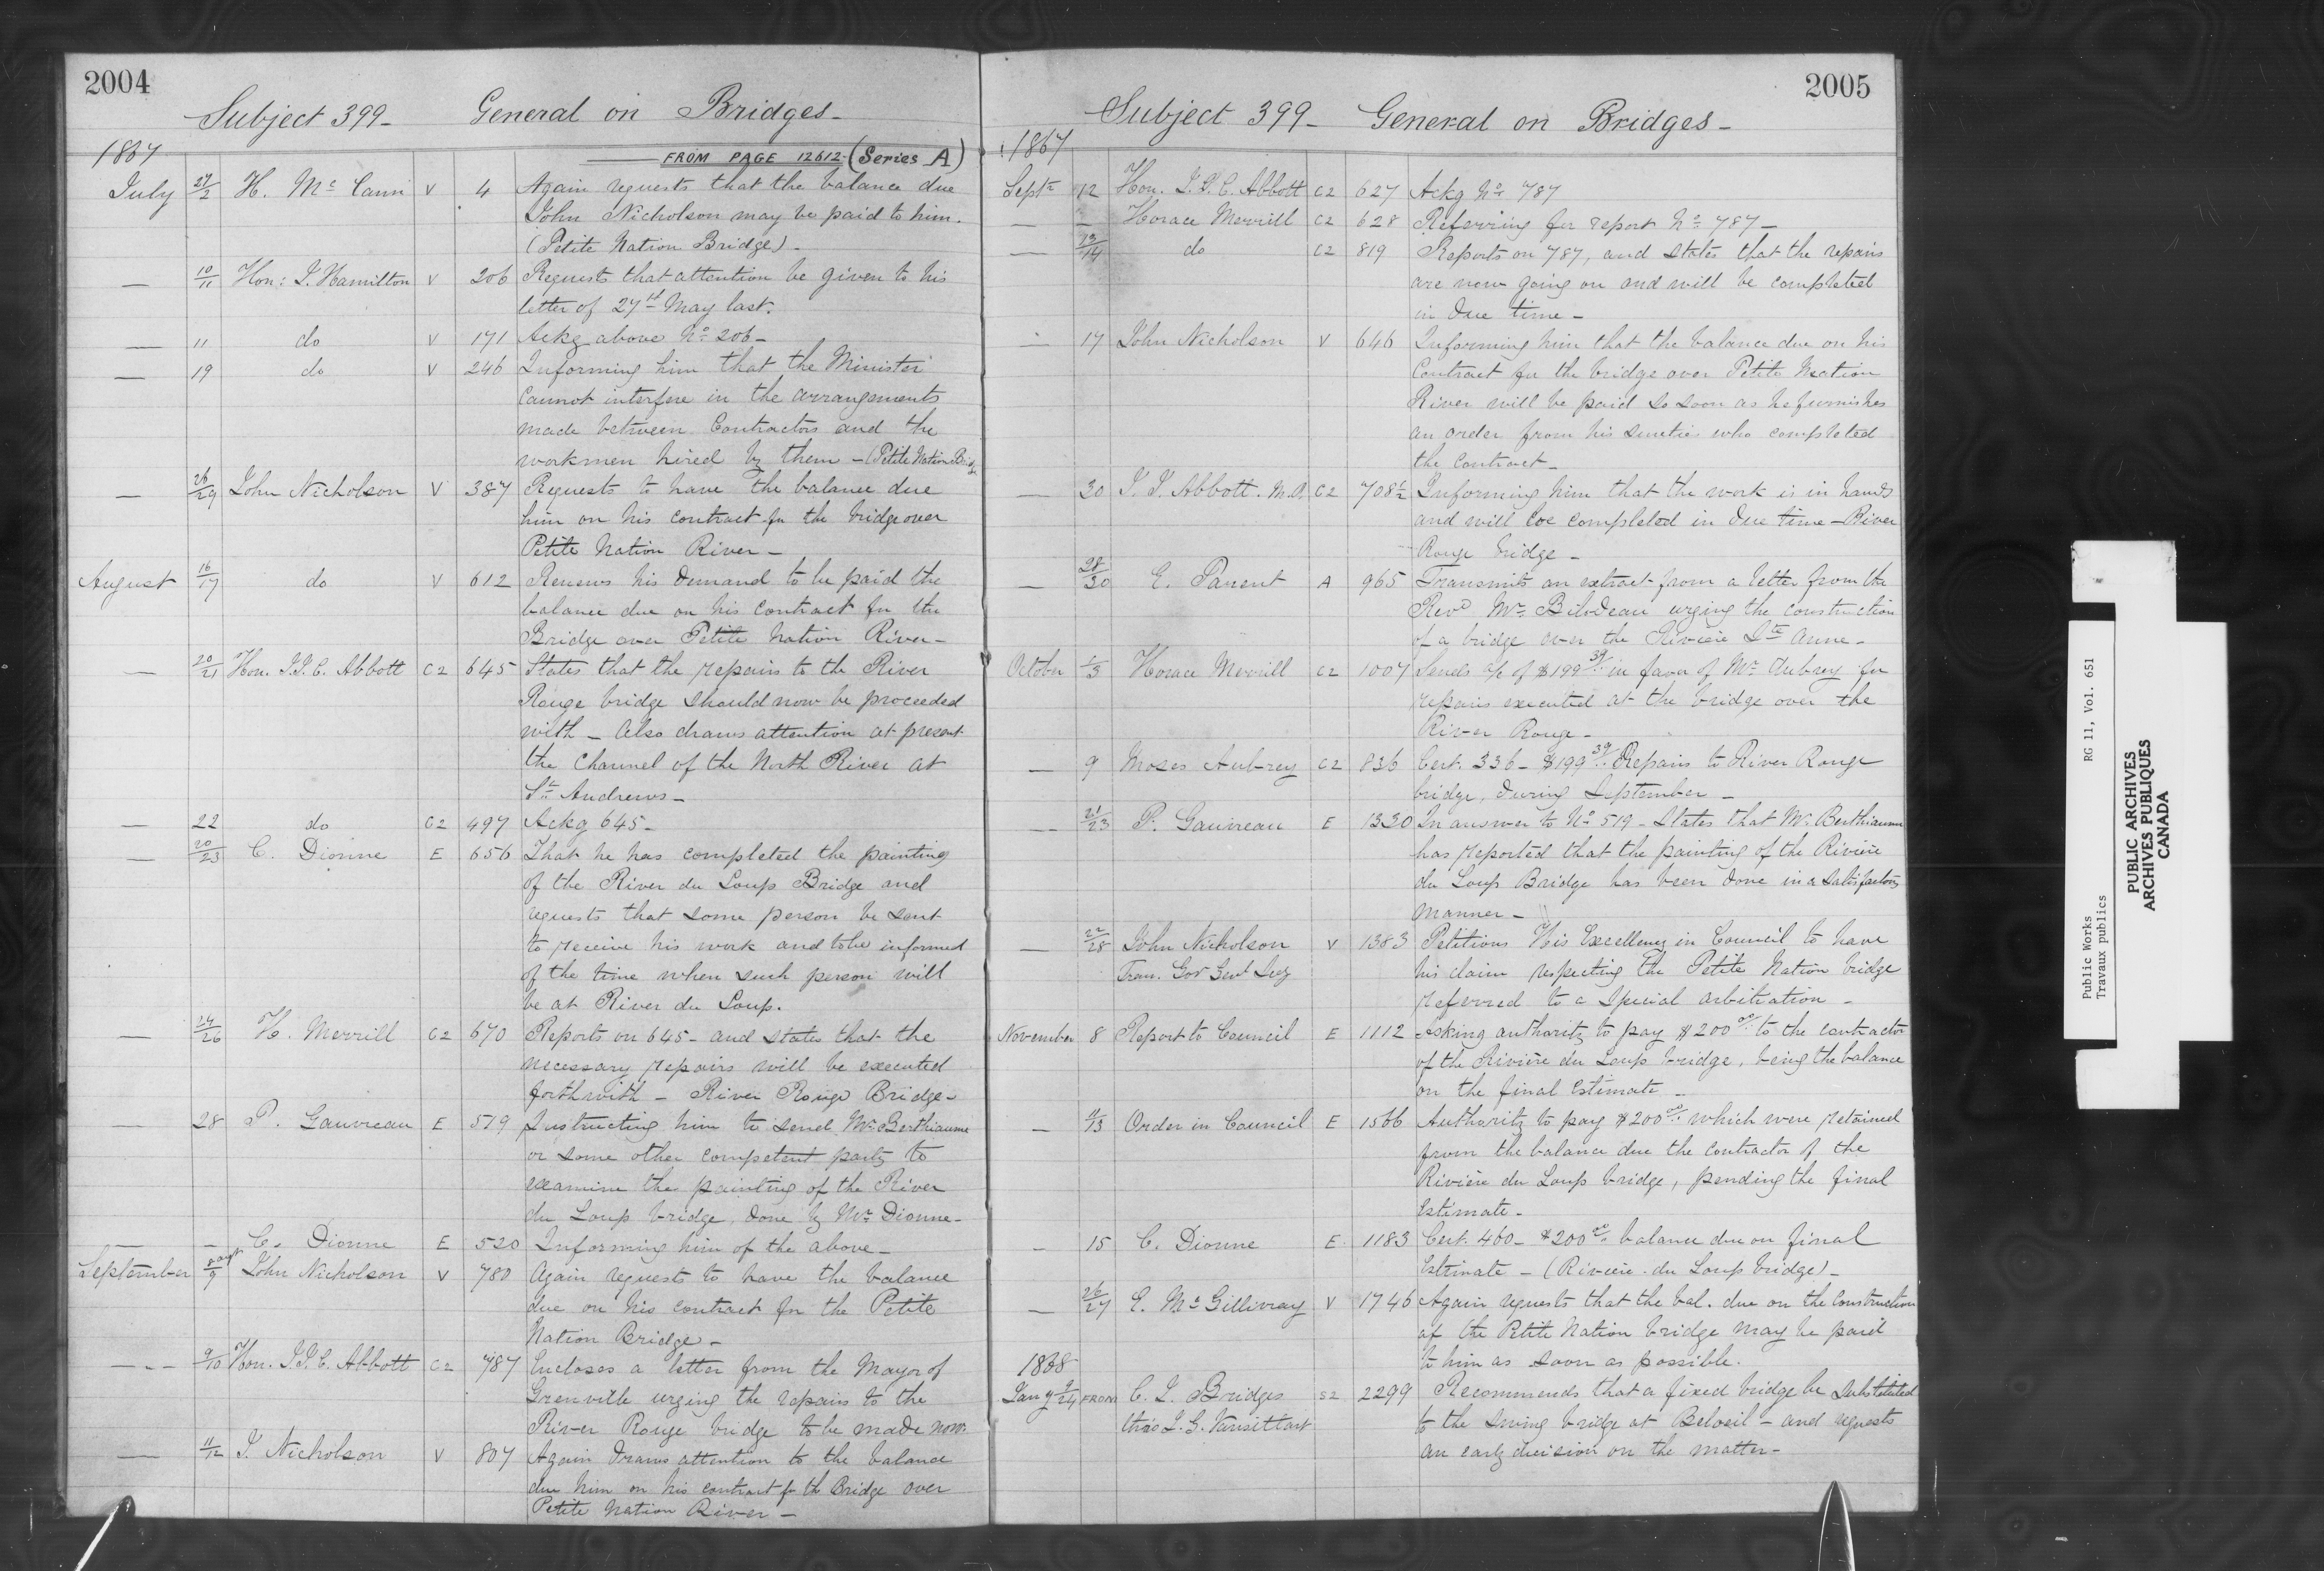 2004
Subject 399_ General on Bridges_
1867
FROM PAGE 12612 (Series A)
July 27/2 H. Mc Cann V 4 Again requests that the balance due
John Nicholson may be paid to him.
(Petite Nation Bridge)_
— 10/11 Hon: J. Hamilton V 206 Requests that attention be given to his
letter of 27th May last.
— 11 do V 171 Ackg above No 206_
— 19 do V 246 Informing him that the Minister
cannot interfere in the arrangements
made between Contractors and the
workmen hired by them _ (Petite Nation Bridge
— 26/29 John Nicholson V 387 Requests to have the balance due
him on his contract for the bridge over
Petite Nation River _
August 16/17 do V 612 Renews his demand to be paid the
balance due on his contract for the
Bridge over Petite Nation River_
— 20/21 Hon. J.J.C. Abbott C2 645 States that the repairs to the River
Rouge bridge should now be proceeded
with _ Also draws attention at present
the Channel of the North River at
St Andrews _
— 22 do C2 497 Ackg 645_
— 20/23 C. Dionne E 656 That he has completed the painting
of the River du Loup Bridge and
requests that some person be sent
to receive his work and to be informed
of the time when such person will
be at River du Loup.
— 24/26 H. Merrill C2 670 Reports on 645_ and states that the
necessary repairs will be executed
forthwith _ River Rouge Bridge_
— 28 P. Gauvreau E 519 Instructing him to send Mr Berthiaume
or some other competent party to
examine the painting of the River
du Loup bridge, done by Mr Dionne_
— — C. Dionne E 520 Informing him of the above_
September 8 augt/9 John Nicholson V 780 Again requests to have the balance
due on his contract for the Petite
Nation Bridge_
— 9/10 Hon. J.J.C. Abbott C2 787 Encloses a letter from the Mayor of
Grenville urging the repairs to the
River Rouge bridge to be made now.
— 11/12 J. Nicholson V 807 Again draws attention to the balance
due him on his contract for the Bridge over
Petite Nation River _
2005
Subject 399_ General on Bridges_
1867
Septr 12 Hon. J.J.C. Abbott C2 627 Ackg No 787
— — Horace Merrill C2 628 Referring for report No 787_
— 13/14 do C2 819 Reports on 787, and states that the repairs
are now going on and will be completed
in due time _
— 17 John Nicholson V 646 Informing him that the balance due on his
Contract for the bridge over Petite Nation
River will be paid so soon as he furnishes
an order from his sureties who completed
the contract_
— 30 J.J. Abbott. M.P. C2 708½ Informing him that the work is in hands
and will be completed in due time _ River
Rouge bridge _
— 28/30 E. Parent A 965 Transmits an extract from a letter from the
Revd Mr. Bilodeau urging the construction
of a bridge over the Rivière Ste Anne_
October 1/3 Horace Merrill C2 1007 Sends a/c of $199 39/.. in favor of Mr Aubrey for
repairs executed at the bridge over the
River Rouge_
— 9 Moses Aubrey C2 836 Cert. 336_ $199 39/.. Repairs to River Rouge
bridge, during September _
— 21/23 P. Gauvreau E 1330 In answer to No 519_ States that Mr Berthiaume
has reported that the painting of the Rivière
du Loup Bridge has been done in a satisfactory
manner _
— 22/28 John Nicholson V 1383 Petitions His Excellency in Council to have
Tran. Gov Genl Secy his claim respecting the Petite Nation bridge
referred to a special arbitration _
November 8 Report to Council E 1112 Asking authority to pay $200 00/.. to the contractor
of the Rivière du Loup bridge, being the balance
on the final estimate _
— 11/13 Order in Council E 1566 Authority to pay $200 00/.. which were retained
from the balance due the contractor of the
Rivière du Loup bridge, pending the final
Estimate_
— 15 C. Dionne E 1183 Cert. 460_ $200 00/.. balance due on final
Estimate _ (Rivière du Loup bridge)_
— 26/27 E. Mc Gillivray V 1746 Again requests that the bal. due on the construction
of the Petite Nation bridge may be paid
to him as soon as possible.
1868
Jany 9/24 FROM C. J. Bridges S2 2299 Recommends that a fixed bridge be substituted
thro J. G. Vansittart to the swing bridge at Beloeil _ and requests
an early decision on the matter_
Public Works RG 11, Vol. 651
Travaux publics
PUBLIC ARCHIVES
ARCHIVES PUBLIQUES
CANADA